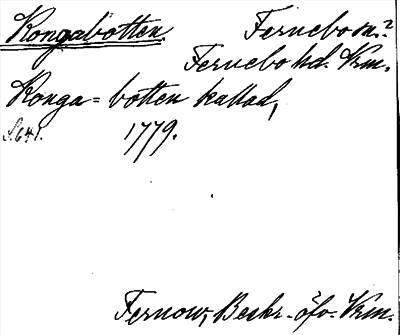 Kongabotten. Fernebo sn.?
Fernebo hd. Vrm.
Konga=botten kallad,
S. 641. 1779.
Fernow, Beskr. öfv. Vrm.